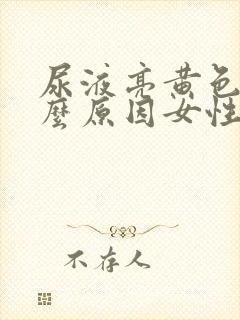 尿液亮黄色
麼原因女性
不存人